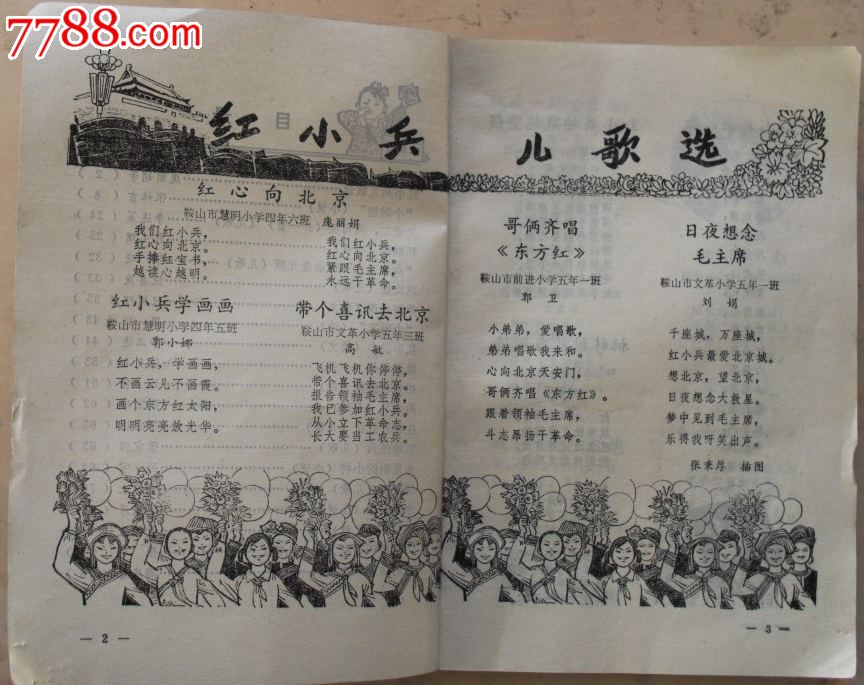 7788.com
红小兵 儿歌选
红心向北京
鞍山市慧明小学四年六班 庞丽娟
我们红小兵，
红心向北京。
手捧红宝书，
越读心越明。
我们红小兵，
红心向北京。
紧跟毛主席，
永远干革命。
红小兵学画画
鞍山市慧明小学四年五班
郭小娜
红小兵，学画画，
不画云儿不画霞。
画个东方红太阳，
明明亮亮放光华。
带个喜讯去北京
鞍山市文革小学五年三班
高敏
飞机飞机你停停，
带个喜讯去北京。
报告领袖毛主席，
我已参加红小兵。
从小立下革命志，
长大要当工农兵。
— 2 —
哥俩齐唱
《东方红》
鞍山市前进小学五年一班
郭卫
小弟弟，爱唱歌，
弟弟唱歌我来和。
心向北京天安门，
哥俩齐唱《东方红》。
跟着领袖毛主席，
斗志昂扬干革命。
日夜想念
毛主席
鞍山市文革小学五年一班
刘娟
千座城，万座城，
红小兵最爱北京城。
想北京，望北京，
日夜想念大救星。
梦中见到毛主席，
乐得我呀笑出声。
张秉厚 插图
— 3 —